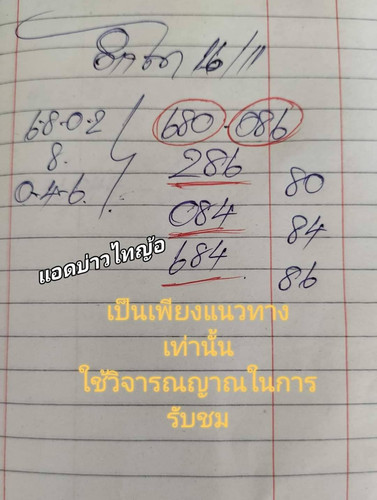 16/11
6-8-0-2 680-086
8. 286 80
0-4-6. 084 84
684 86
แอดบ่าวไทญ้อ
เป็นเพียงแนวทาง
เท่านั้น
ใช้วิจารณญาณในการ
รับชม